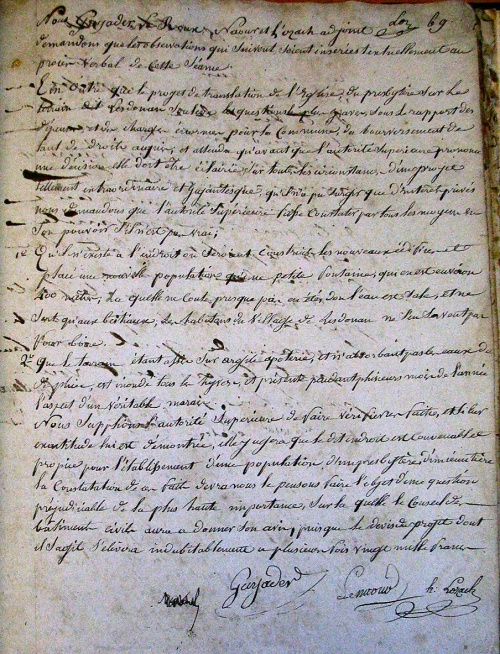 Nous Garjader, Le Roux, Naour et Lozach adjoint 69
demandons que les observations qui suivent soient inserées textuellement au
procès verbal de cette séance.
En outre que le projet de translation de l'Eglise, du presbytère sur le
terrain dit Lesdonan soulève la question la plus grave, sous le rapport des
et des charges énormes pour la Commune, du bouleversement de
tant de droits acquis, et attendu qu'avant que l'autorité supérieure prononce
une décision elle doit être éclairée sur toutes les circonstances d'un projet
tellement extraordinaire et Gigantesque, qu'il n'a pu surgir que d'intérêts privés
nous demandons que l'autorité Supérieure fasse Constater par tous les moyens en
Son pouvoir s'il n'est pas vrai;
1º Qu'il n'existe à l'endroit où seront construits les nouveaux édifices et
placée une nouvelle population qu'une petite fontaine, qui en est environ
400 mètres, La quelle ne coule presque pas en été, dont l'eau est sale, et ne
sert qu'aux bestiaux, les habitans du Village de Lesdonan ne l'en vont pas
pour boire.
2º Que le terrain étant assis sur argile à poterie, et n'absorbant pas les eaux de
pluie, est inondé tous les hyvers, et présente pendant plusieurs mois de l'année
l'aspect d'un véritable marais.
Nous Supplions l'autorité Supérieure de faire vérifier ces faits, et si leur
exactitude lui est démontrée, elle jugera que le dit endroit est convenable et
propice pour l'établissement d'une population d'un presbytère d'un cimetière
la Constatation de ces faits devra nous le pensons faire l'objet d'une question
préjudiciable de la plus haute importance, sur la quelle le Conseil de
bâtiments civils aura a donner son avis, puisque le devis du projet dont
il s'agit s'élèvera indubitablement a plusieurs fois vingt mille francs
Garjader Lenaour h. Lozach